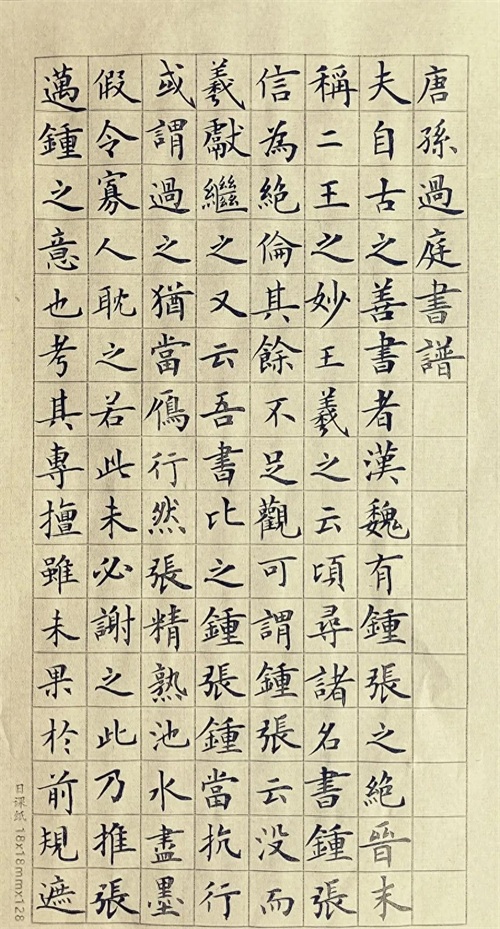 唐孫過庭書譜
夫自古之善書者漢魏有鍾張之絕晉末
稱二王之妙王羲之云頃尋諸名書鍾張
信為絕倫其餘不足觀可謂鍾張云没而
羲獻繼之又云吾書比之鍾張鍾當抗行
或謂過之猶當鴈行然張精熟池水盡墨
假令寡人耽之若此未必謝之此乃推張
邁鍾之意也考其專擅雖未果於前規遮
日课纸 18x18mmx128